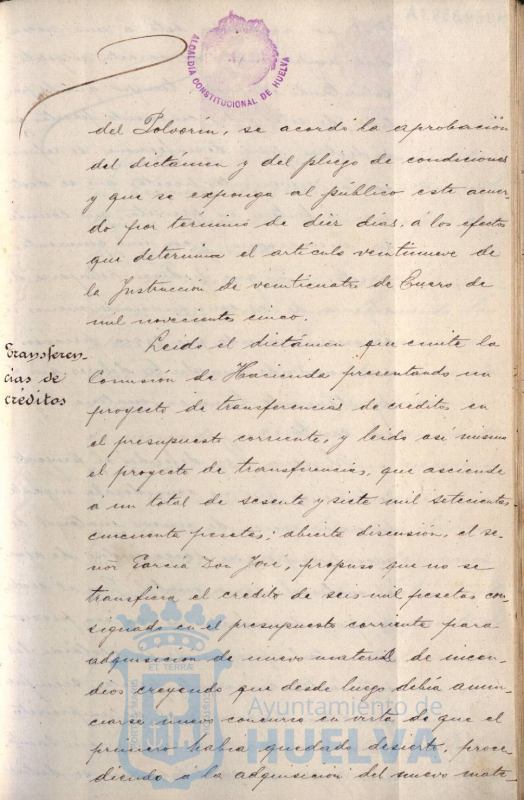 ALCALDIA CONSTITUCIONAL DE HUELVA
del Polvorín, se acordó la aprobación
del dictámen y del pliego de condiciones
y que se exponga al público este acuer-
do por término de diez dias, á los efectos
que determina el artículo veintinueve de
la Instrucción de veinticuatro de Enero de
mil novecientos cinco.
Transferen-
cias de
créditos
Leido el dictámen que emite la
Comisión de Hacienda presentando un
proyecto de transferencias de crédito, en
el presupuesto corriente, y leido asi mismo
el proyecto de transferencias, que asciende
a un total de sesenta y siete mil setecientas
cincuenta pesetas; abierta discusión, el se-
ñor García Don José, propuso que no se
transfiera el crédito de seis mil pesetas con-
signado en el presupuesto corriente para
adquisición de nuevo material de incen-
dios creyendo que desde luego debía anun-
ciarse nuevo concurso en vista de que el
primero habia quedado desierto, proce-
diendo á la adquisición del nuevo mate-
Ayuntamiento de
HUELVA